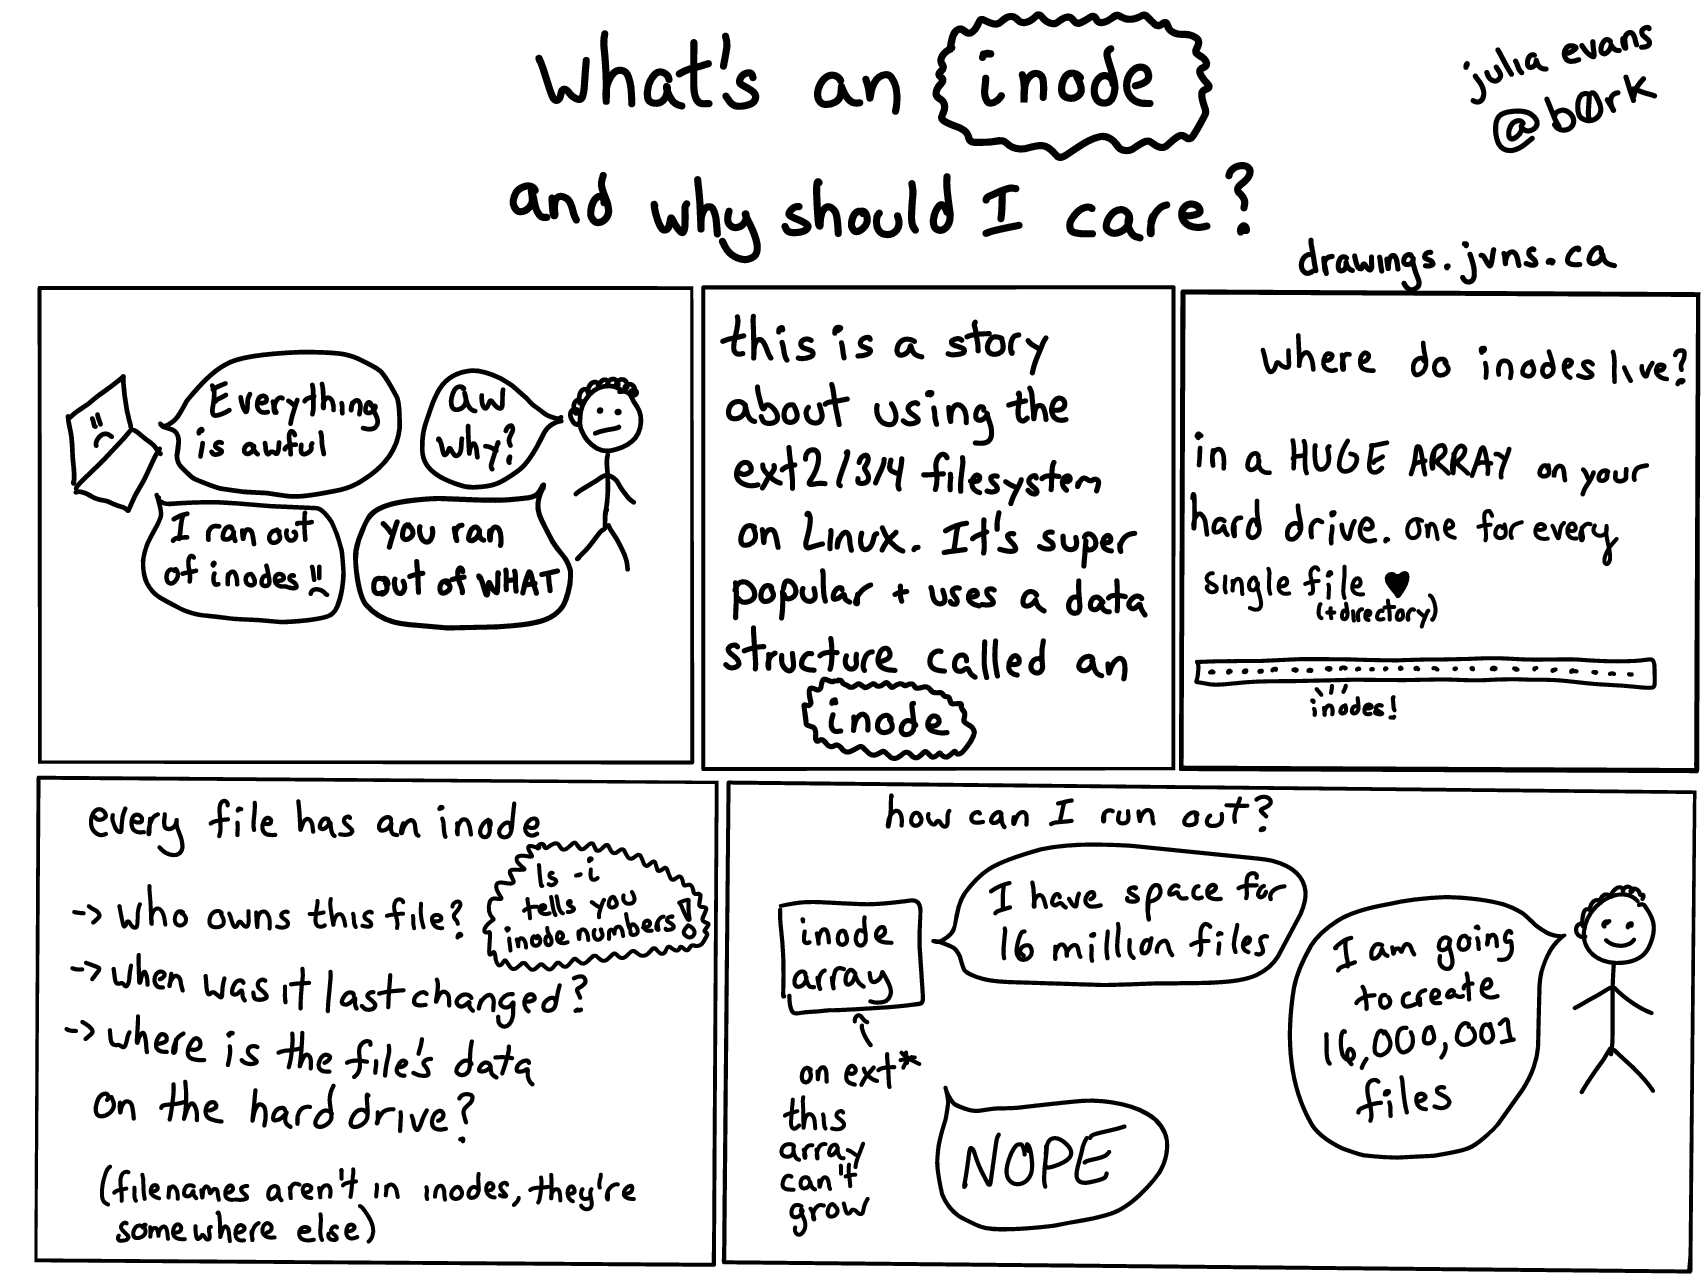 What's an inode
and why should I care?
julia evans
@b0rk
drawings.jvns.ca
Everything
is awful
aw
why?
I ran out
of inodes
you ran
out of WHAT
this is a story
about using the
ext2/3/4 filesystem
on Linux. It's super
popular + uses a data
structure called an
inode
where do inodes live?
in a HUGE ARRAY on your
hard drive. one for every
single file ♥
(+directory)
inodes!
every file has an inode
ls -i
tells you
inode numbers!
-> who owns this file?
-> when was it last changed?
-> where is the file's data
on the hard drive?
(filenames aren't in inodes, they're
somewhere else)
how can I run out?
inode
array
I have space for
16 million files
I am going
to create
16,000,001
files
on ext*
this
array
can't
grow
NOPE